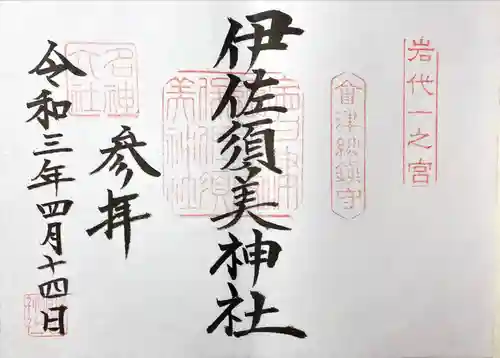 岩代一之宮
會津総鎮守
伊佐須美神社
参拝
名神
大社
令和三年四月十四日